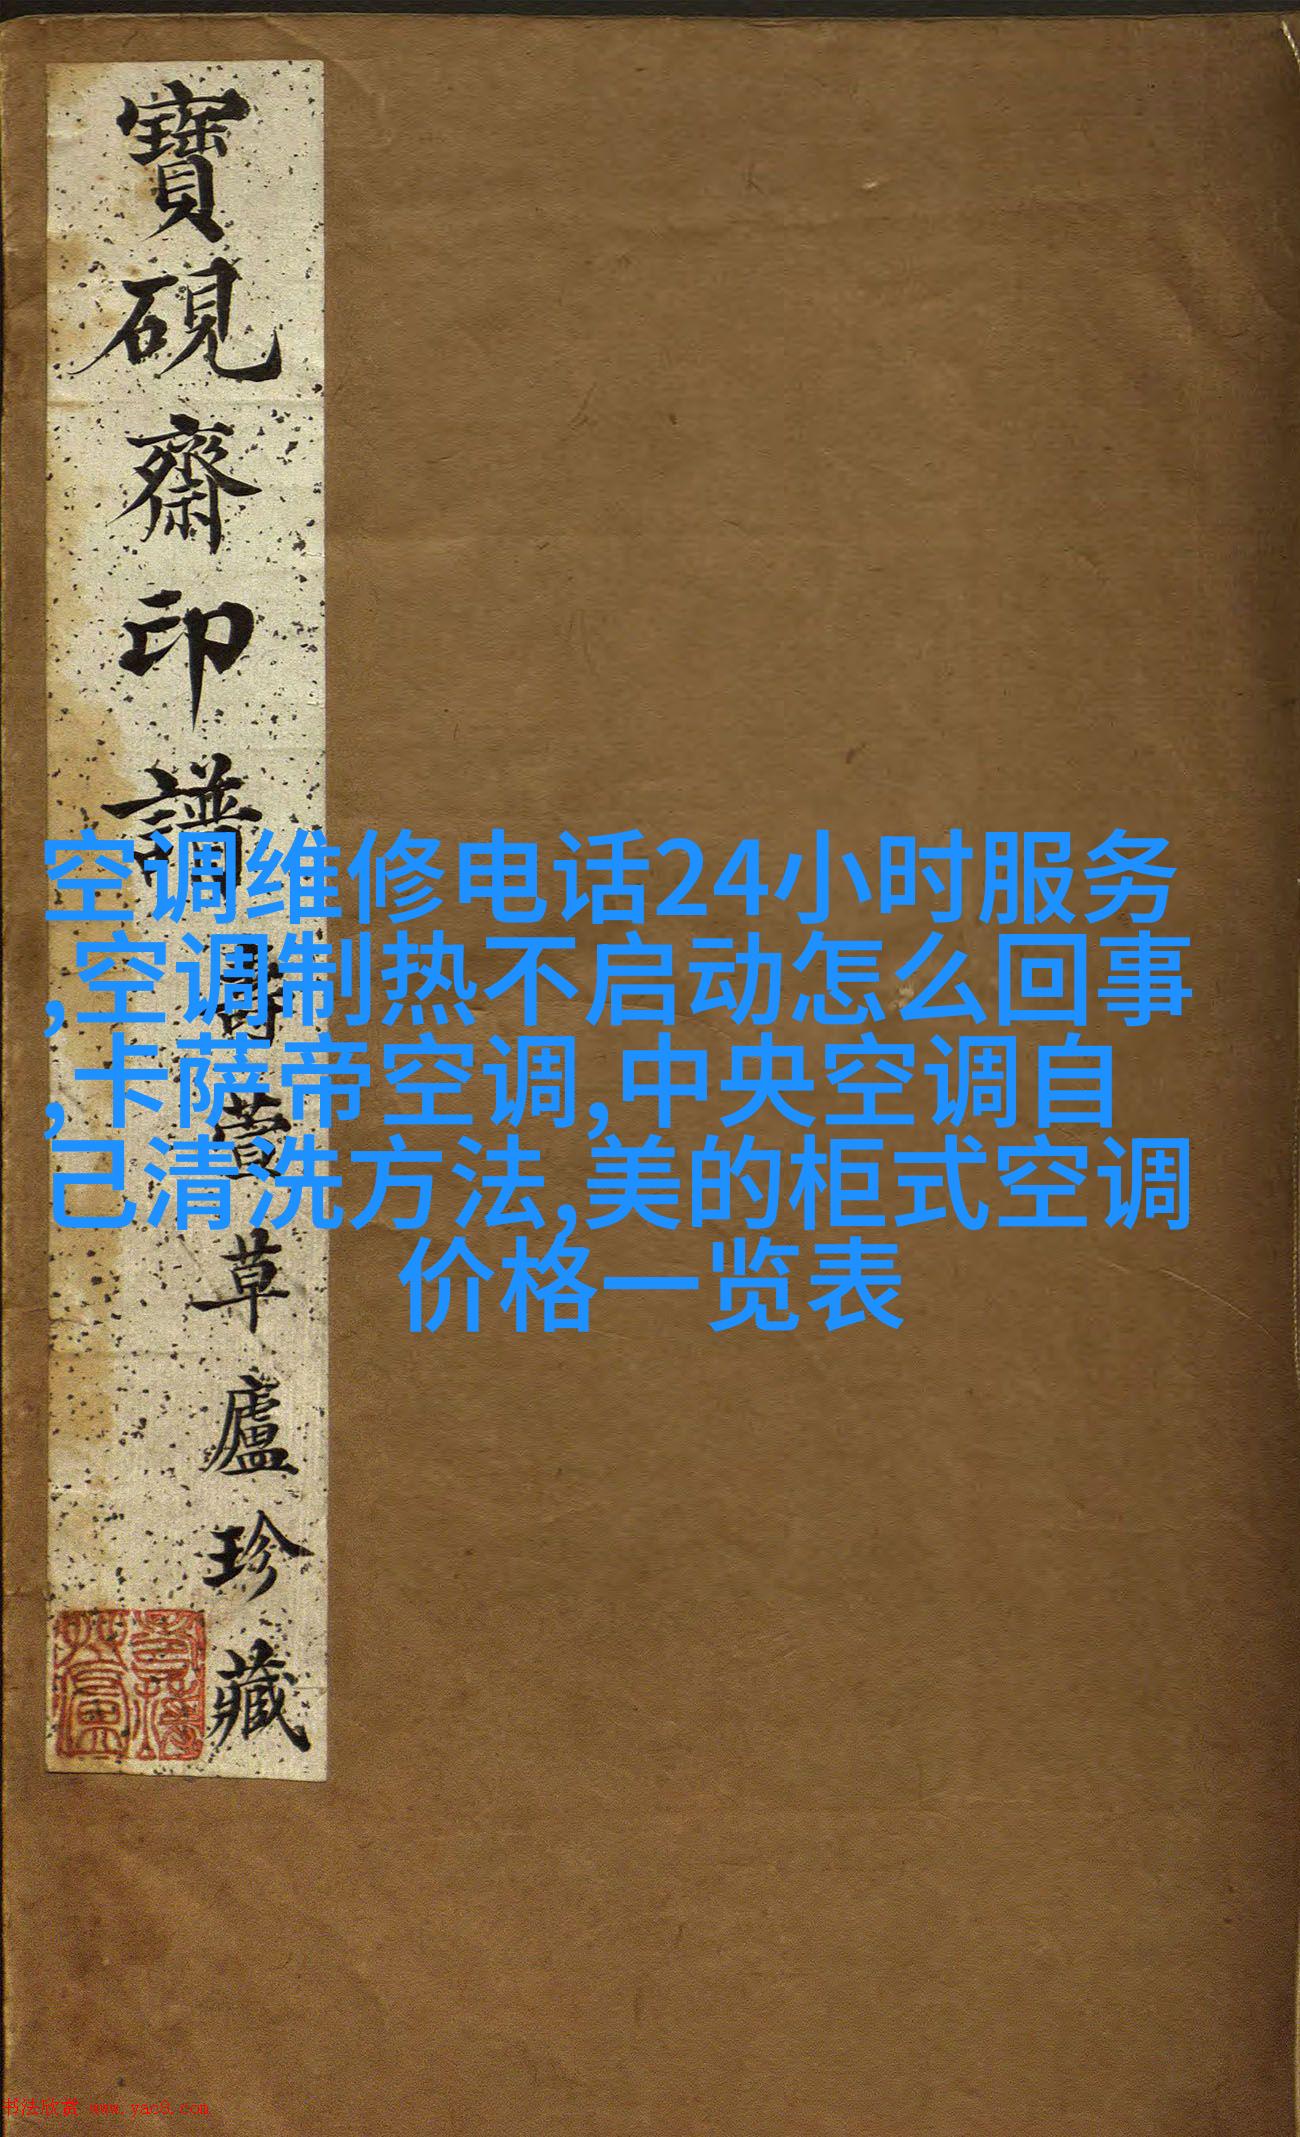 寶硯齋印譜
萱草廬珍藏
空调维修电话24小时服务
,空调制热不启动怎么回事
,卡萨帝空调,中央空调自
己清洗方法,美的柜式空调
价格一览表
书法欣赏 www.yac8.com